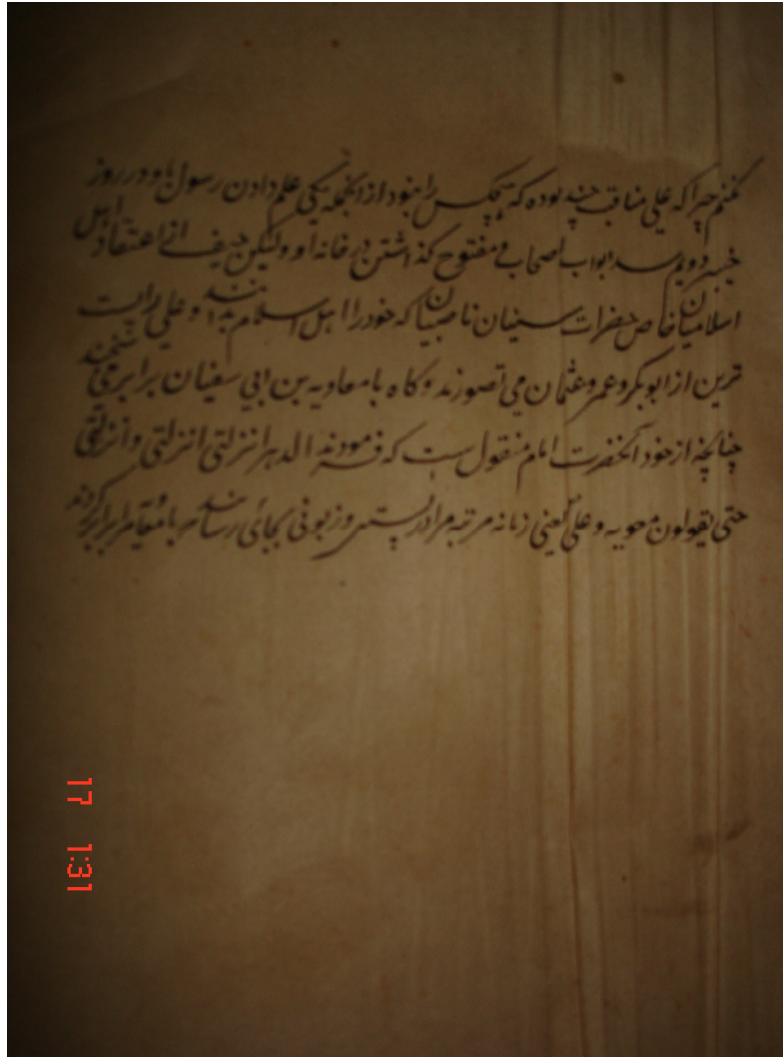 کنم چرا که علی مناقب چند بوده که هیچکس را نبود از آنجمله یکی علم دادن رسول باو در روز
خیبر دویم سد ابواب اصحاب و مفتوح گذاشتن در خانه او ولیکن حیف از اعتقاد اهل
اسلامیان خاص حضرات سنیان ناصبیان که خود را اهل اسلام بدانند و علی را پست
ترین از ابوبکر و عمر و عثمان می تصورند و گاه با معاویه بن ابی سفیان برابر می سنجند
چنانچه از خود آنحضرت امام منقول است که فرمودند الدهر انزلنی انزلنی و انزلنی
حتی یقولون معویه و علی یعنی زمانه مرتبه مرا در پستی و زبونی بجائی رساند با معویه برابر کردند
17 1:31